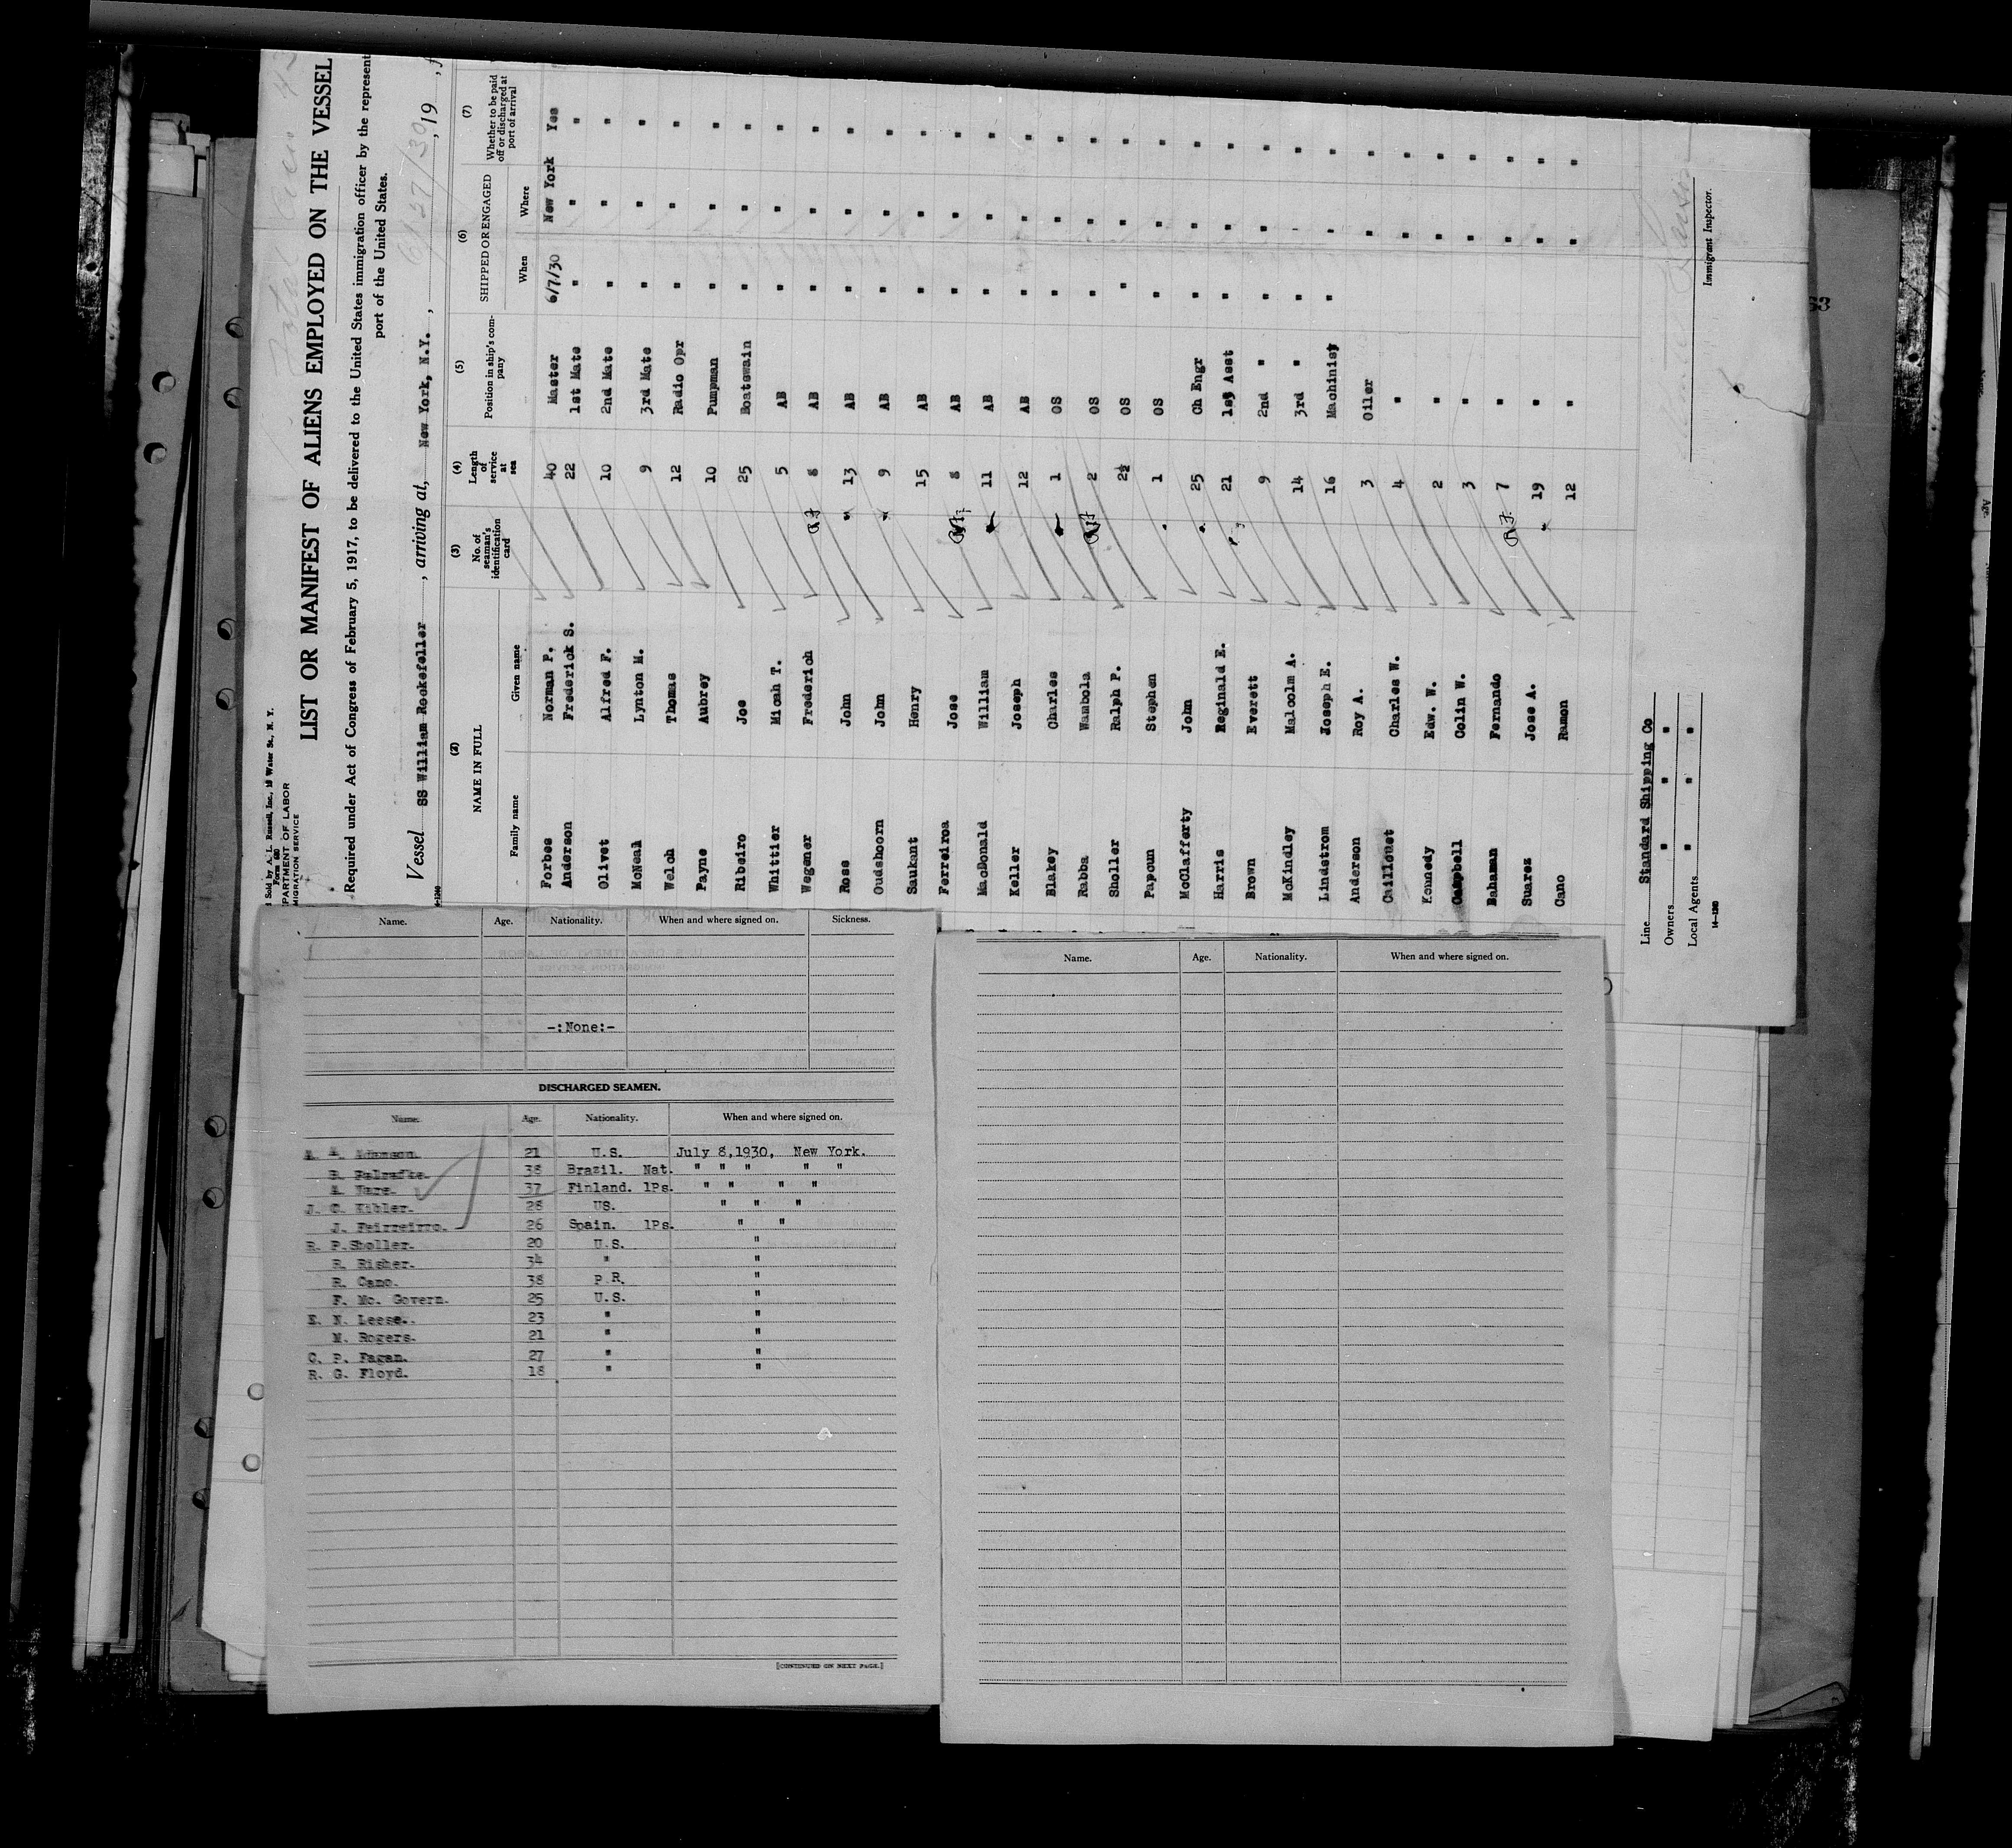 Sold by A. L. Russell, Inc., Water St., N. Y.
Form 680
PARTMENT OF LABOR
MIGRATION SERVICE
LIST OR MANIFEST OF ALIENS EMPLOYED ON THE VESSEL
Required under Act of Congress of February 5, 1917, to be delivered to the United States immigration officer by the represent
port of the United States.
6/27/30
Vessel SS William Rockefeller , arriving at, New York, N.Y. , , 19 , f
(2) (3) (4) (5) (6) (7)
NAME IN FULL No. of seaman's identification card Length of service at sea Position in ship's company SHIPPED OR ENGAGED Whether to be paid off or discharged at port of arrival
Family name Given name When Where
Forbes Norman P. 40 Master 6/7/30 New York Yes
Anderson Frederick S. 22 1st Mate " " "
Olivet Alfred F. 10 2nd Mate " " "
McNeal Lynton M. 9 3rd Mate " " "
Welch Thomas 12 Radio Opr " " "
Payne Aubrey 10 Pumpman " " "
Ribeiro Joe 25 Boatswain " " "
Whittier Micah T. 5 AB " " "
Wegener Frederich 8 AB " " "
Rose John 13 AB " " "
Oudshoorn John 9 AB " " "
Saukant Henry 15 AB " " "
Ferreiroa Jose 8 AB " " "
MacDonald William 11 AB " " "
Keller Joseph 12 AB " " "
Blakey Charles 1 OS " " "
Rabba Wambola 2 OS " " "
Sholler Ralph P. 2½ OS " " "
Papoun Stephen 1 OS " " "
McClafferty John 25 Ch Engr " " "
Harris Reginald E. 21 1st Asst " " "
Brown Everett 9 2nd " " " "
McKindley Malcolm A. 14 3rd " " " "
Lindstrom Joseph E. 16 Machinist " " "
Anderson Roy A. 3 Oiler " "
Caillouet Charles W. 4 " " "
Kennedy Edw. W. 2 " " "
Campbell Colin W. 3 " " "
Bahaman Fernando 7 " " "
Suarez Jose A. 19 " " "
Cano Ramon 12 " " "
Line Standard Shipping Co
Owners " " "
Local Agents " " "
14—1240
Immigrant Inspector.
Name. Age. Nationality. When and where signed on. Sickness.
-:None:-
DISCHARGED SEAMEN.
Name. Age. Nationality. When and where signed on.
Adamson. 21 U.S. July 8,1930, New York.
38 Brazil. Nat. " " " " "
37 Finland. 1Ps. " " " "
J. C. Kibler. 28 US. " " "
J. Feirreirro. 26 Spain. 1Ps. " "
R. P. Sholler. 20 U.S. "
R. Risher. 34 " "
R. Cano. 38 P.R. "
F. Mc. Govern. 25 U.S. "
E. N. Leese. 23 " "
M. Rogers. 21 " "
C. P. Fagan. 27 " "
R. G. Floyd. 18 " "
[CONTINUED ON NEXT PAGE.]
Name. Age. Nationality. When and where signed on.